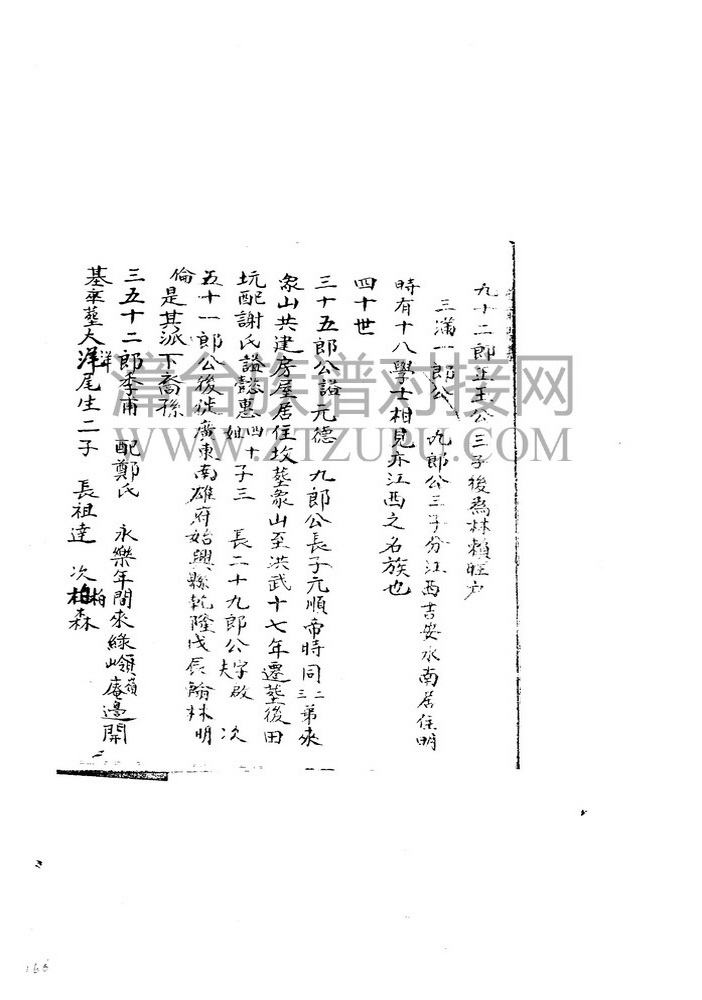 九十二郎正玉公三子後為林賴旺戶
三滿一郎公 九郎公三子分江西吉安水南居住明
時有十八學士相見亦江西之名族也
四十世
三十五郎公諡元德 九郎公長子元順帝時同二三弟來
象山共建房屋居住坟塟象山至洪武十七年遷塟後田
坑配謝氏諡懿惠四十姐 子三 長二十九郎公字啟夫 次
五十一郎公後徙廣東南雄府始興縣乾隆戊辰翰林明
倫是其派下裔孫
三五十二郎季甫 配鄭氏 永樂年間來綠嶺庵邊開
基卒塟大洋尾生二子 長祖達 次柏森
漳台族谱对接网
WWW.ZTZUPU.COM